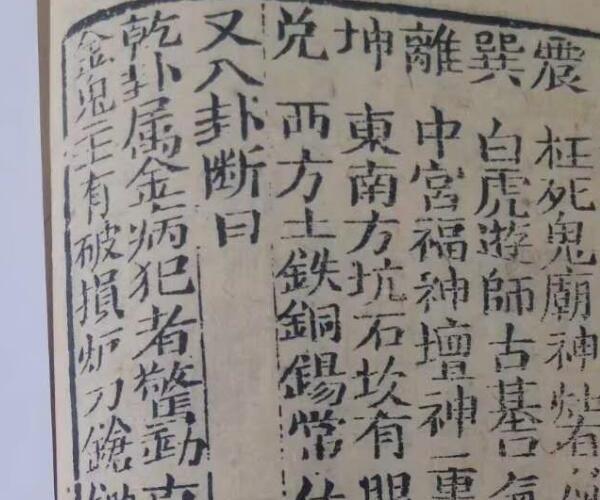 震 枉死鬼廟神
巽 白虎遊師古墓
離 中宮福神壇神
坤 東南方坑石坎有眼
兌 西方土鉄銅錫常
又八卦斷曰
乾卦属金病犯者驚動
金鬼主有破損炉刀鎗